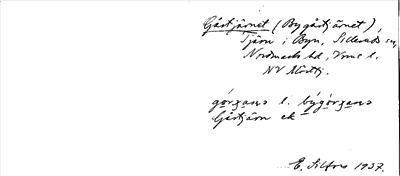 Gårtjärnet (Bygårtjärnet),
Tjärn i Byn, Sillerud sn,
Nordmarks hd, Vrml l.
NV Mörttj.
górʒanə l. býgórʒanə
Gårtjärn ek
E. Silfors 1937.